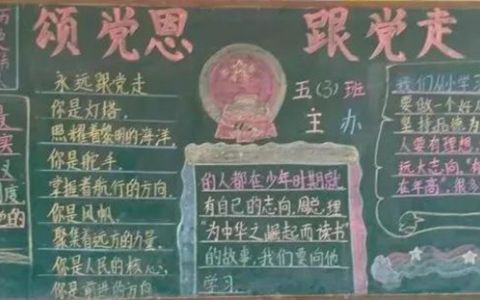 颂党恩 跟党走
永远跟党走
你是灯塔,
照耀着黎明的海洋,
你是舵手,
掌握着航行的方向,
你是风帆,
聚集着远方的力量,
你是人民的核心,
你是前进的方向
五(3)班
主办
的人都在少年时期就
有自己的志向,周总理
"为中华之崛起而读书"
的故事,我们要向他
学习.
我们从小学习
要做一个好人
坚持品德为
人要有理想,
远大志向,"有
在年高",很多